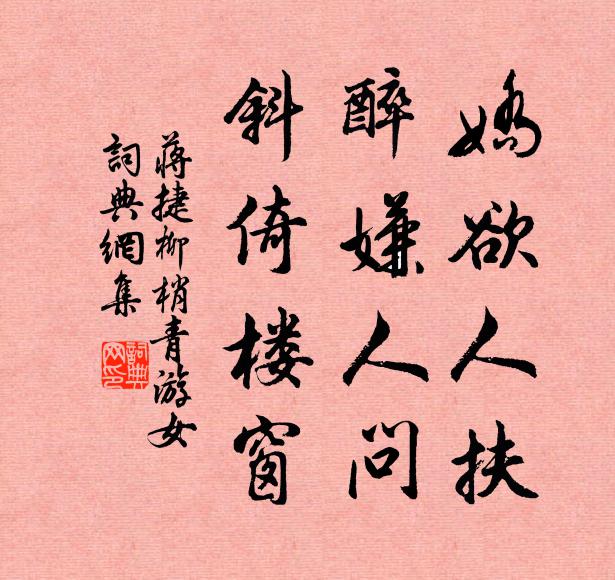 嬌欲人扶
醉嫌人問
斜倚楼窗
蔣捷柳梢青游女
詞典網集
詞典网印